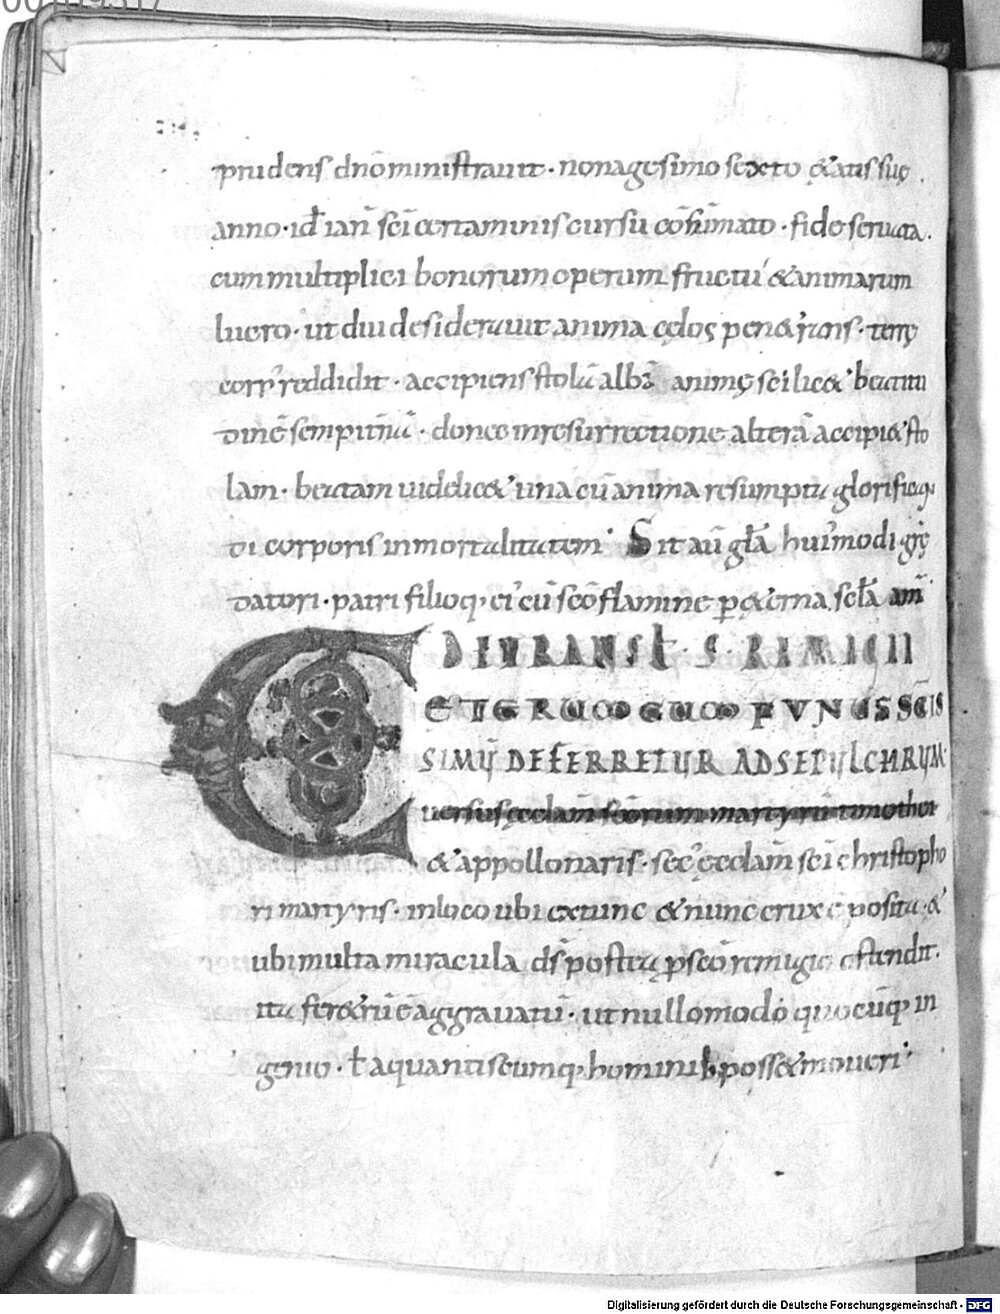 prudens dn̄o ministrauit · nonagesimo sexto &atis suę
anno · id̄ ian̄ sc̄i certaminis cursu cōsūmato · fide seruata .
cum multiplici bonorum operum fructu & animarum
lucro · ut diu desiderauit anima cęlos pen&rans · terrę
corp' reddidit · accipiens stolā albā animę scilic& beatitu
dinē sempit̄nā · donec in resurrectione alterā accipi& sto
lam · beatam uidelic& una cū anima resumpta glorifica
ti corporis inmortalitatem · Sit aū gl̄a hui'modi
datori · patri filioq; ei' cū sc̄o flamine p &erna sc̄la am̄
DE TRANSL̄ · S · REMIGII
ET ERGO CUM FVNUS SC̄IS
SIMŪ DEFERRETUR AD SEPULCHRUM
uersus ęcclam̄ sc̄orum martyrū timothei
& appollonaris · sec' ęcclam̄ sc̄i christopho
ri martyris · in loco ubi extunc & nunc crux ē posita · &
ubi multa miracula ds̄ postea p sc̄o remigio ostendit ·
ita fer&rū ē aggrauatū · ut nullo modo quocūq; in
genio · ł a quantiscumq; hominib; poss& moueri ·
Digitalisierung gefördert durch die Deutsche Forschungsgemeinschaft - DFG